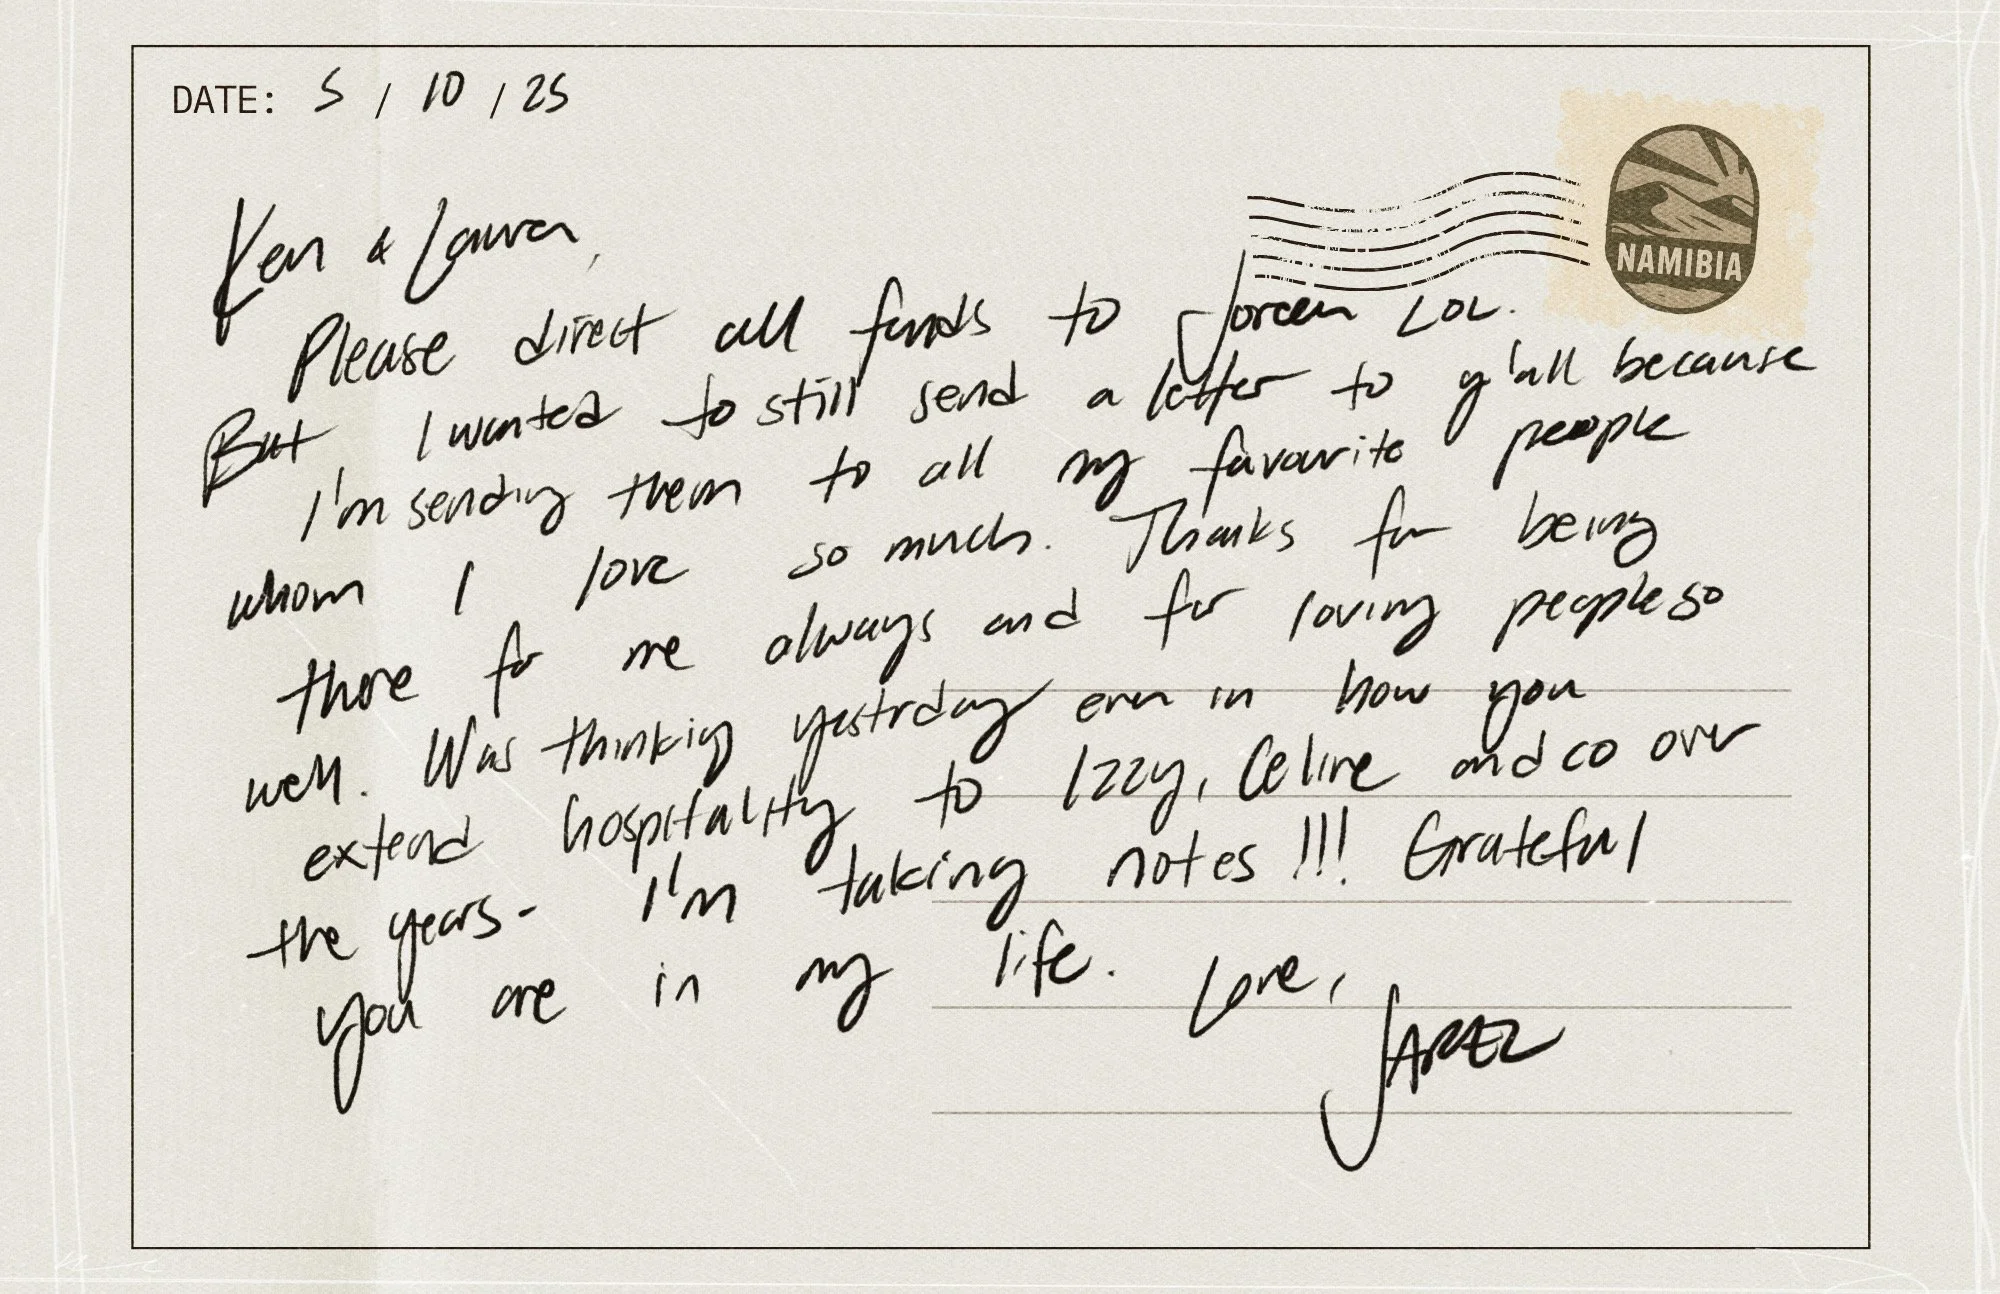 DATE: 5 / 10 / 25
NAMIBIA
Ken & Lauren,
Please direct all funds to Joreen LOL.
But I wanted to still send a letter to y'all because
I'm sending them to all my favourite people
whom I love so much. Thanks for being
there for me always and for loving people so
well. Was thinking yesterday even in how you
extend hospitality to Izzy, Celine and co over
the years - I'm taking notes!!! Grateful
you are in my life. Love,
JAREZ